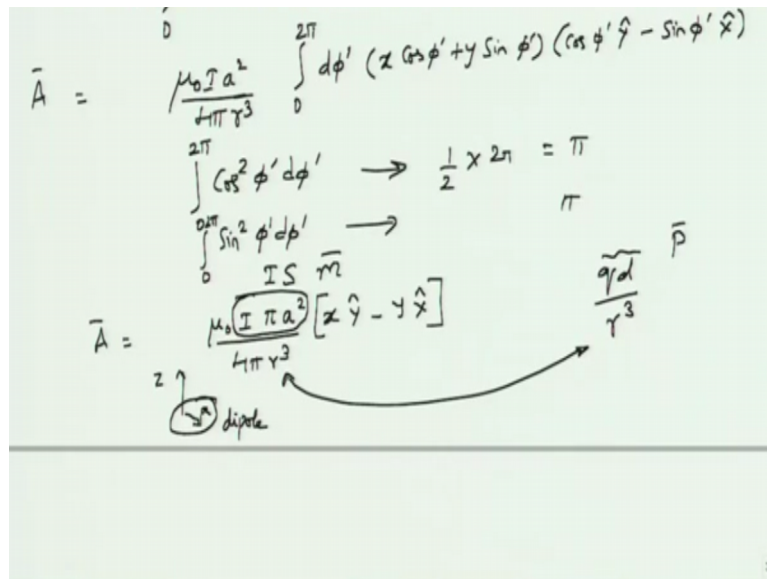 0
Ā = μ₀Ia² / 4πr³ ∫₀^2π dφ' (x cosφ' + y sin φ') (cos φ' ŷ − sin φ' x̂)
∫₀^2π cos² φ' dφ' → 1/2 × 2π = π
∫₀^2π sin² φ' dφ' → π
I S m̄
Ā = μ₀ I πa² / 4πr³ [x ŷ − y x̂]
qd / r³ p̄
z
a
dipole